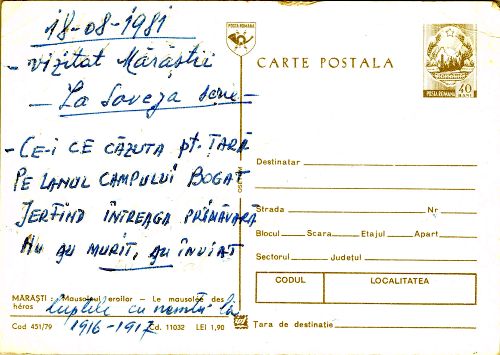 18-08-1981
- Vizitat Mărăștii
- La Soveja scrie -
- CE-I CE CĂZUTA pt. ȚARĂ
PE LANUL CAMPULUI BOGAT
JERFIND ÎNTREAGA PRIMĂVARĂ
NU AU MURIT, AU ÎNVIAT
MĂRĂȘTI : Mausoleul eroilor — Le mausolée des
héros
luptele cu nemții
1916-1917
Cod 451/79
Cd. 11032 LEI 1,90
POSTA ROMANA
CARTE POSTALA
POSTA ROMANA 40 BANI
Destinatar
Strada Nr
Blocul Scara Etajul Apart
Sectorul Județul
CODUL LOCALITATEA
Țara de destinație